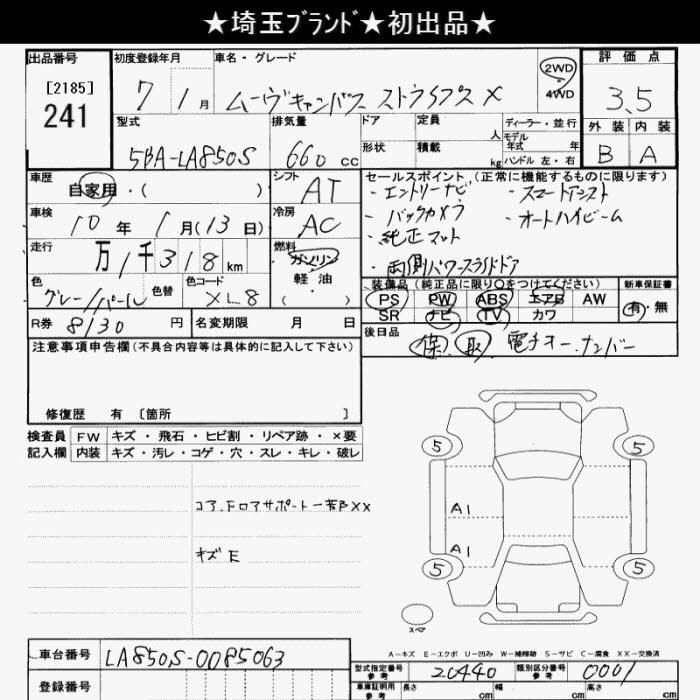 ★埼玉ブランド★初出品★
出品番号 初度登録年月 車名・グレード 評価点
[2185] 7 1月 ムーヴキャンバス ストライプス X 2WD・4WD 3.5
241
型式 排気量 ドア 定員 人 ディーラー・並行 外装 内装
モデル年式 年
5BA-LA850S 660 cc 形状 積載 kg ハンドル 左・右 B A
車歴 シフト セールスポイント(正常に機能するものに限ります)
自家用・( ) AT ・エントリーナビ ・スマートアシスト
車検 冷房 ・バックカメラ ・オートハイビーム
10年 1月(13日) AC ・純正マット
走行 燃料 ・両側パワースライドドア
万1千318km ガソリン
軽油
( )
色 色替 色コード 装備品(純正品に限り○をつけてください) 新車保証書
グレー/パール XL8 PS PW ABS エアB AW 有・無
SR ナビ TV カワ
R券 8130円 名変期限 月 日 後日品
保 取 電子キー、ナンバー
注意事項申告欄(不具合内容等は具体的に記入して下さい)
修復歴 有〔箇所 〕
検査員 FW キズ・飛石・ヒビ割・リペア跡・×要
記入欄 内装 キズ・汚レ・コゲ・穴・スレ・キレ・破レ
5 5
コアドロアサポート一部XX
A1
A1
キズE
5 5
スペア
A-キズ E-エクボ U-凹み W-補修跡 S-サビ C-腐食 XX-交換済
車台番号 LA850S-0085063 型式指定番号 参考 20440 類別区分番号 参考 0001
登録番号 車庫証明用 参考 長さ cm 幅 cm 高さ cm